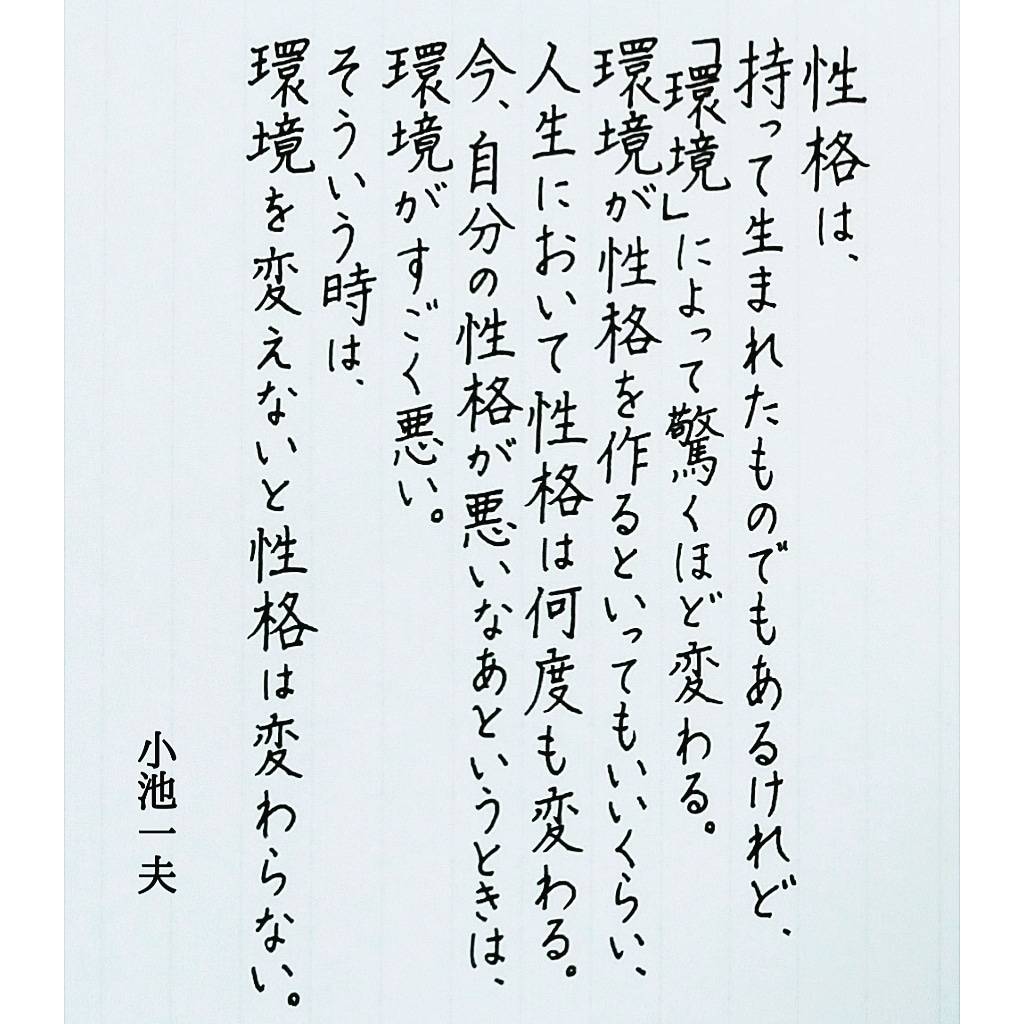 性格は、
持って生まれたものでもあるけれど、
「環境」によって驚くほど変わる。
環境が性格を作るといってもいいくらい、
人生において性格は何度も変わる。
今、自分の性格が悪いなあというときは、
環境がすごく悪い。
そういう時は、
環境を変えないと性格は変わらない。
小池一夫